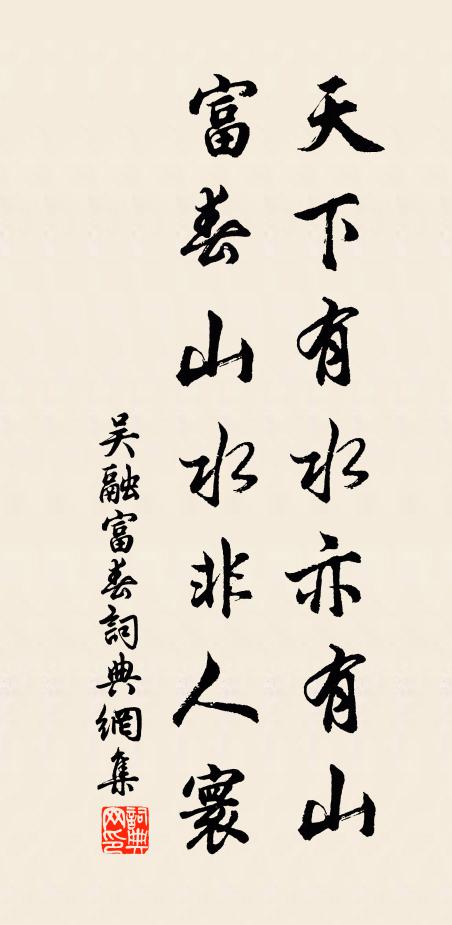 天下有水亦有山
富春山水非人寰
吳融富春詞典網集
詞典网印